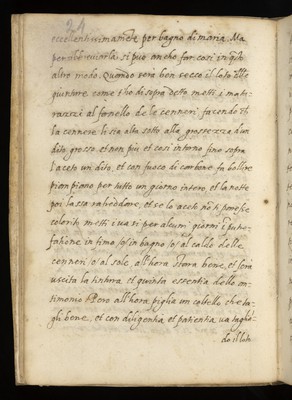 24
eccellentissimamente per bagno di maria. Ma
per abbreviarla si può ancho far così in q.sto
altro modo. Quando sera ben secco il loto delle
giunture come t'ho di sopra detto metti i ma-
al fornello de le ceneri facendo ch
la cennere li stia alta sotto alla grossezza d'un
dito grosso et non più et così intorno fino sopra
l'aceto un dito, et con fuoco di carbone fa bollire
pian piano per tutto un giorno intero, et la notte
poi lassa rafreddare, et se lo aceto nō ti paresse
colorito metti i vasi per alcuni giorni in putre-
fatione in fimo o in bagno o al caldo delle
cenneri o al sole, all'hora stara bene, et sera
uscita la tintura et quinta essentia dello an-
timonio. Però all'hora piglia un coltello che ta-
gli bene, et con diligentia et patientia va taglian-
do il loto